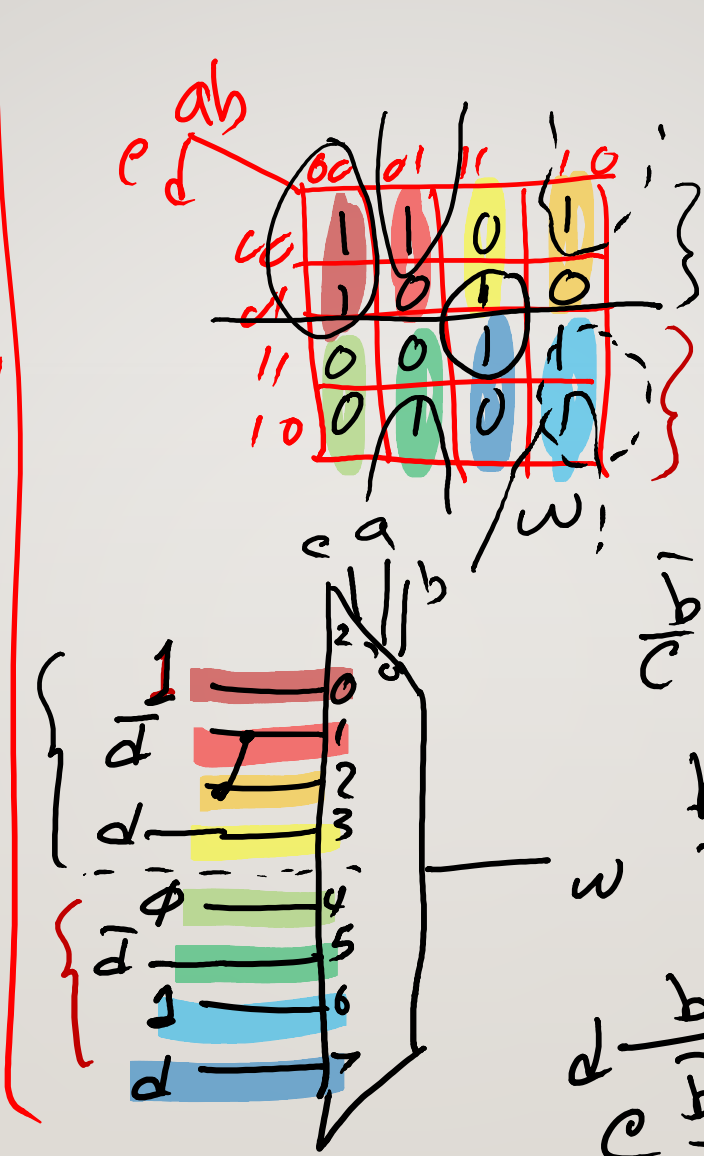 ab
c
d
00 01 11 10
00 1 1 0 1
01 1 0 1 0
11 0 0 1 1
10 0 1 0 1
w
c a b
2 1 0
1 0
d̅ 1
2
d 3
0 4
d̅ 5
1 6
d 7
w
b̅
c
d b
b̅
c